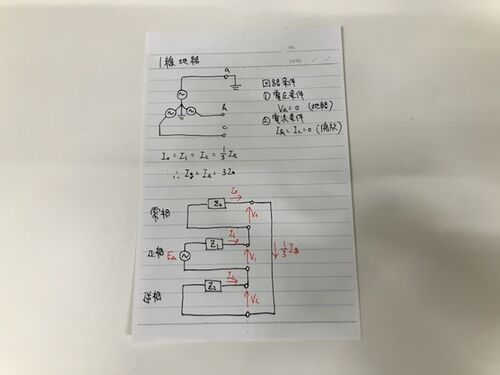 No.
DATE / /
1線地絡
a
b
c
回路条件
① 電圧条件
Va=0 (地絡)
② 電流条件
Ib=Ic=0 (開放)
I₀=I₁=I₂=1/3 Ia
∴ Ig=Ia=3I₀
零相
Z₀
I₀
V₀
正相
Ea
Z₁
I₁
V₁
1/3 Ig
逆相
Z₂
I₂
V₂